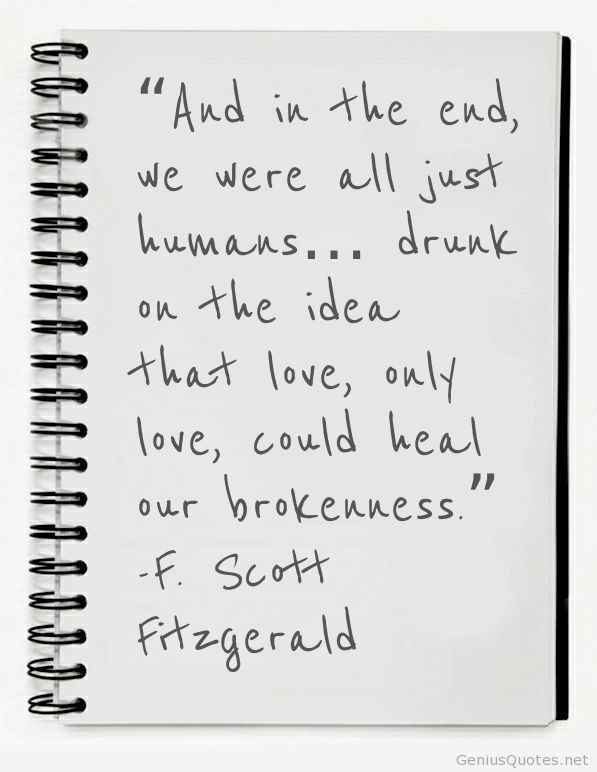 “And in the end,
we were all just
humans... drunk
on the idea
that love, only
love, could heal
our brokenness.”
-F. Scott
Fitzgerald
GeniusQuotes.net